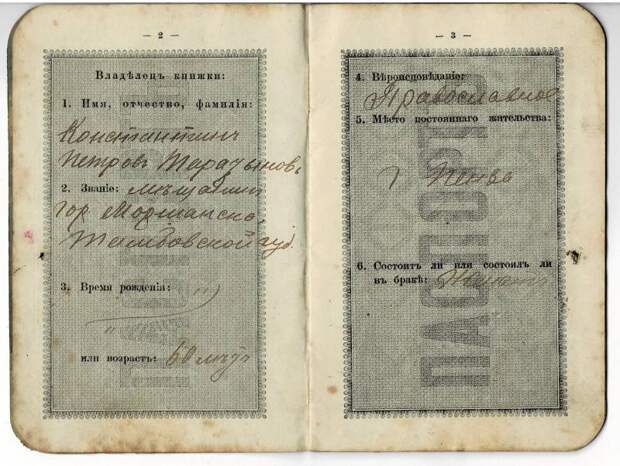 — 2 —
Владѣлецъ книжки:
1. Имя, отчество, фамилія:
Константинъ
Петровъ
2. Званіе: мѣщанинъ
гор Моршанска,
Тамбовской губ
3. Время рожденія:
или возрастъ: 60 лѣтъ
— 3 —
4. Вѣроисповѣданіе:
Православное
5. Мѣсто постояннаго жительства:
г Пенза
6. Состоитъ ли или состоялъ ли
въ бракѣ: Женатъ
ПАСПОРТЪ